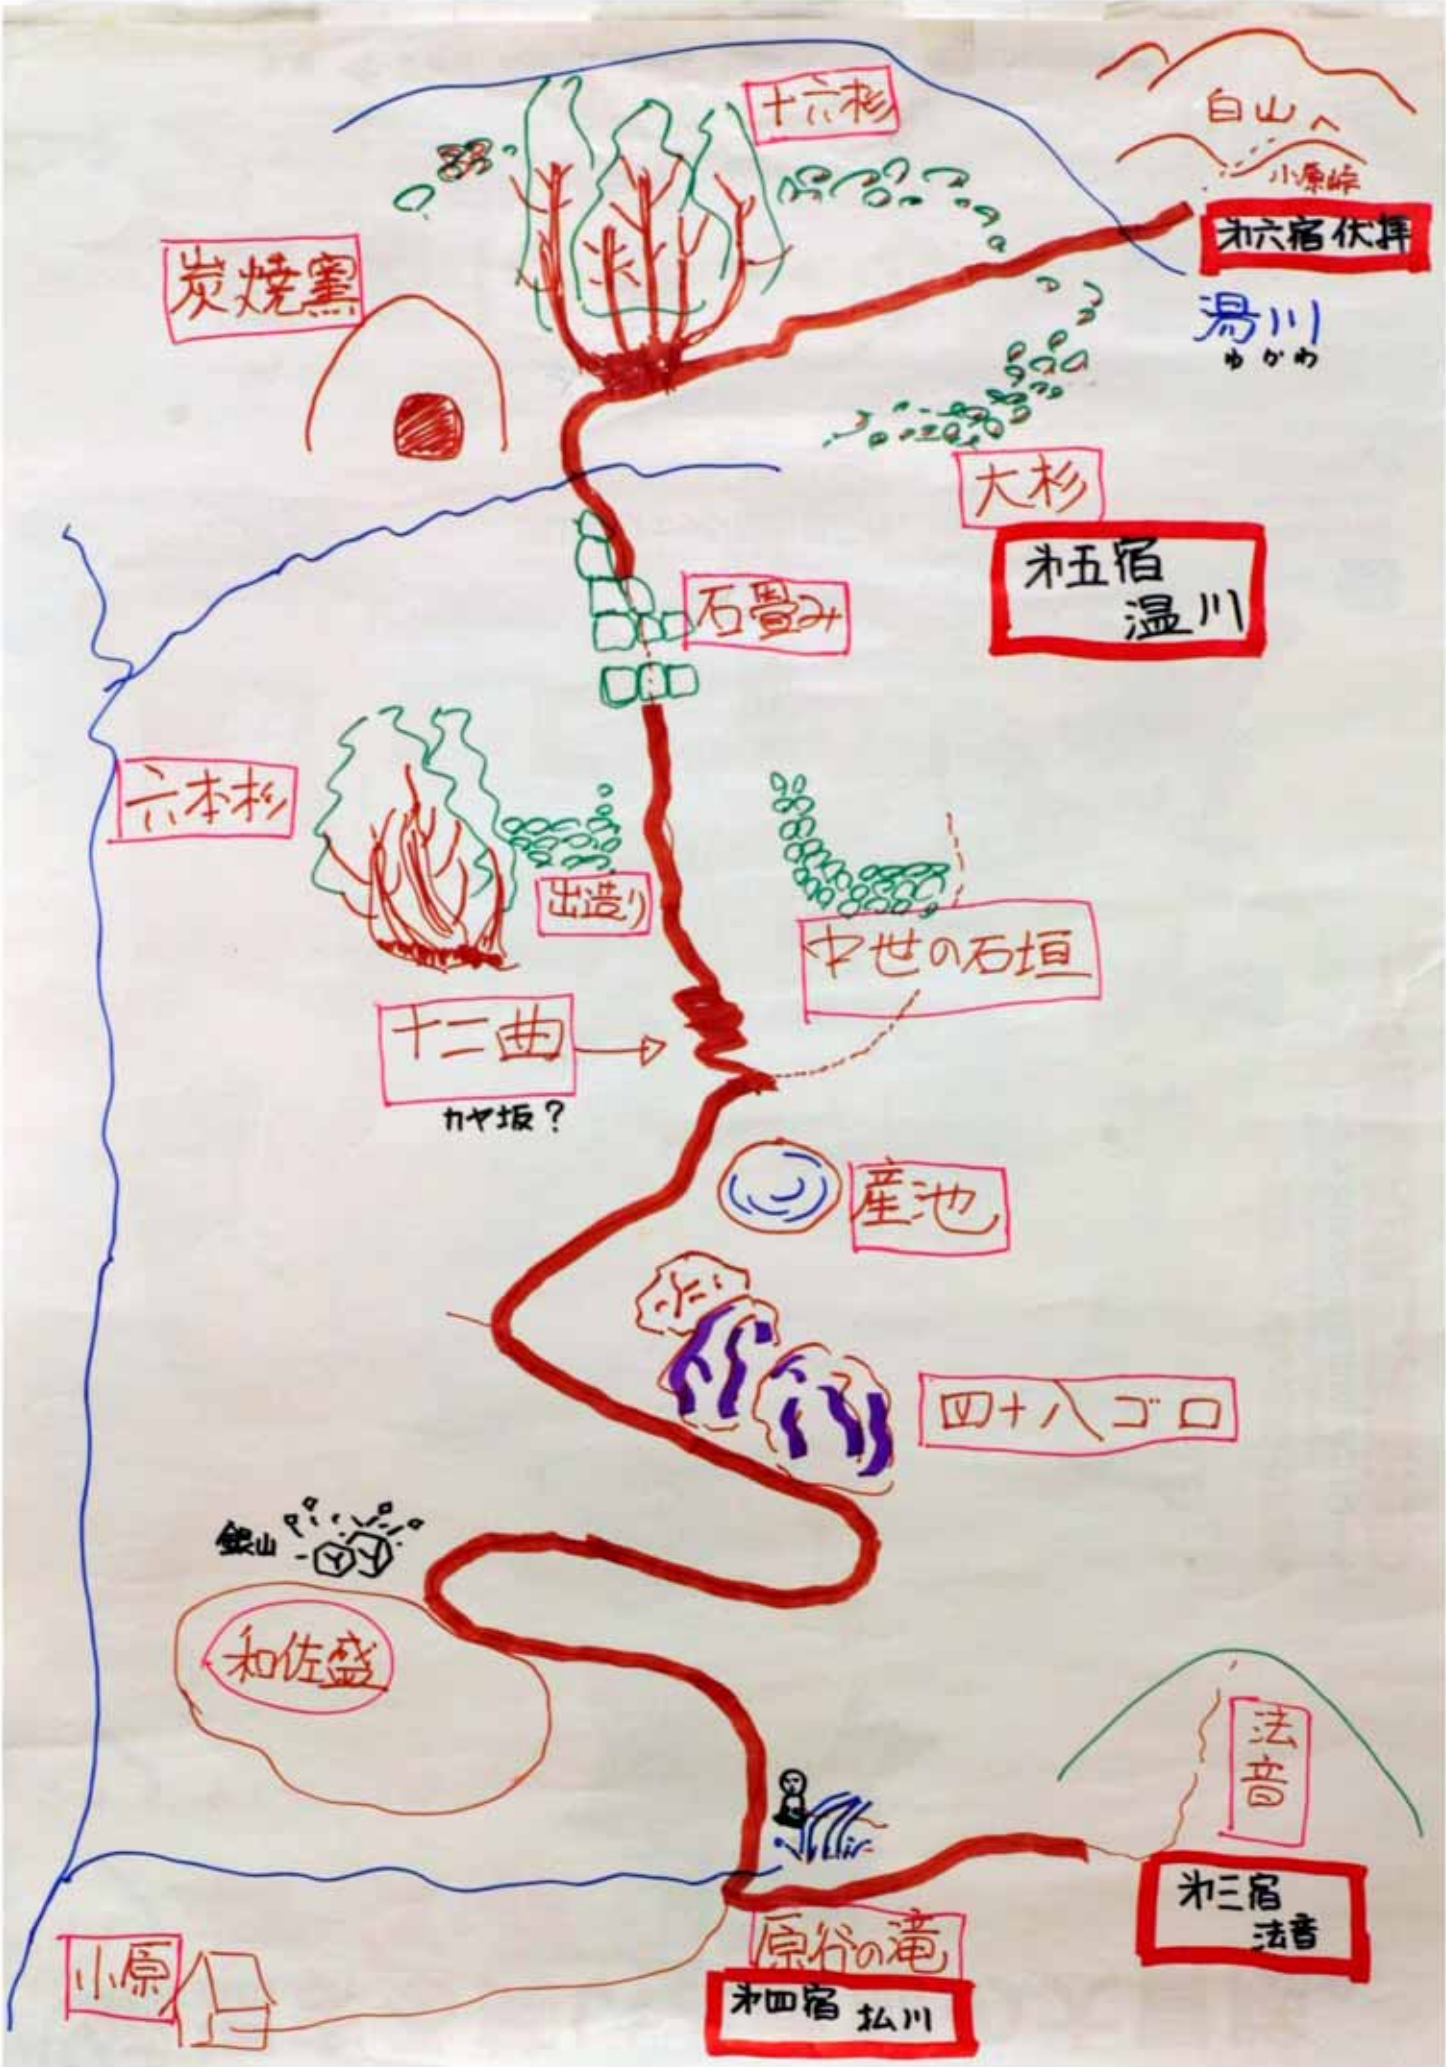 十六杉
白山へ
小原峠
㐧六宿伏拝
炭焼窯
湯川
ゆかわ
大杉
㐧五宿
温川
石畳み
六本杉
出造り
中世の石垣
十二曲
カヤ坂?
産池
四十八ゴロ
銀山
和佐盛
法音
㐧三宿
法音
原谷の滝
小原
㐧四宿 払川